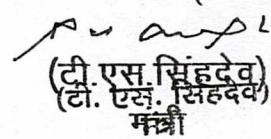 (टी.एस.सिंहदेव)
(टी. एस. सिंहदेव)
मंत्री